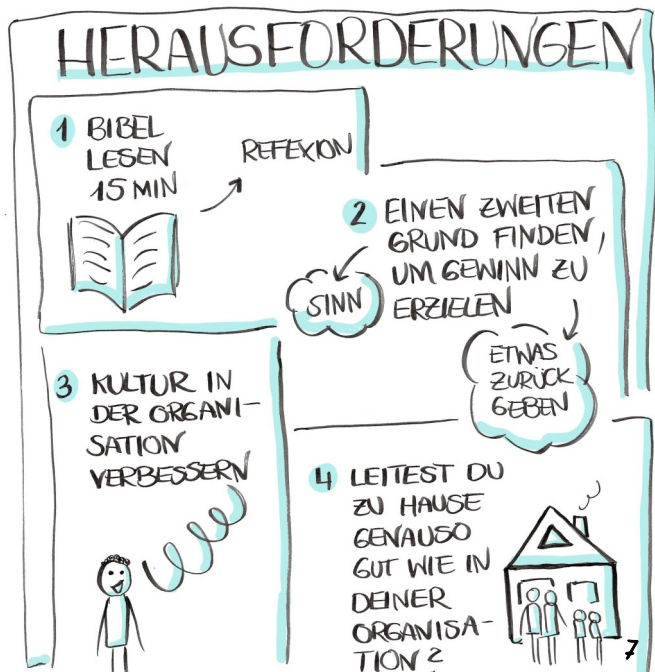 HERAUSFORDERUNGEN
1 BIBEL
LESEN
15 MIN
REFEXION
2 EINEN ZWEITEN
GRUND FINDEN,
UM GEWINN ZU
ERZIELEN
SINN
ETWAS
ZURÜCK
GEBEN
3 KULTUR IN
DER ORGANI-
SATION
VERBESSERN
4 LEITEST DU
ZU HAUSE
GENAUSO
GUT WIE IN
DEINER
ORGANISA-
TION?
7